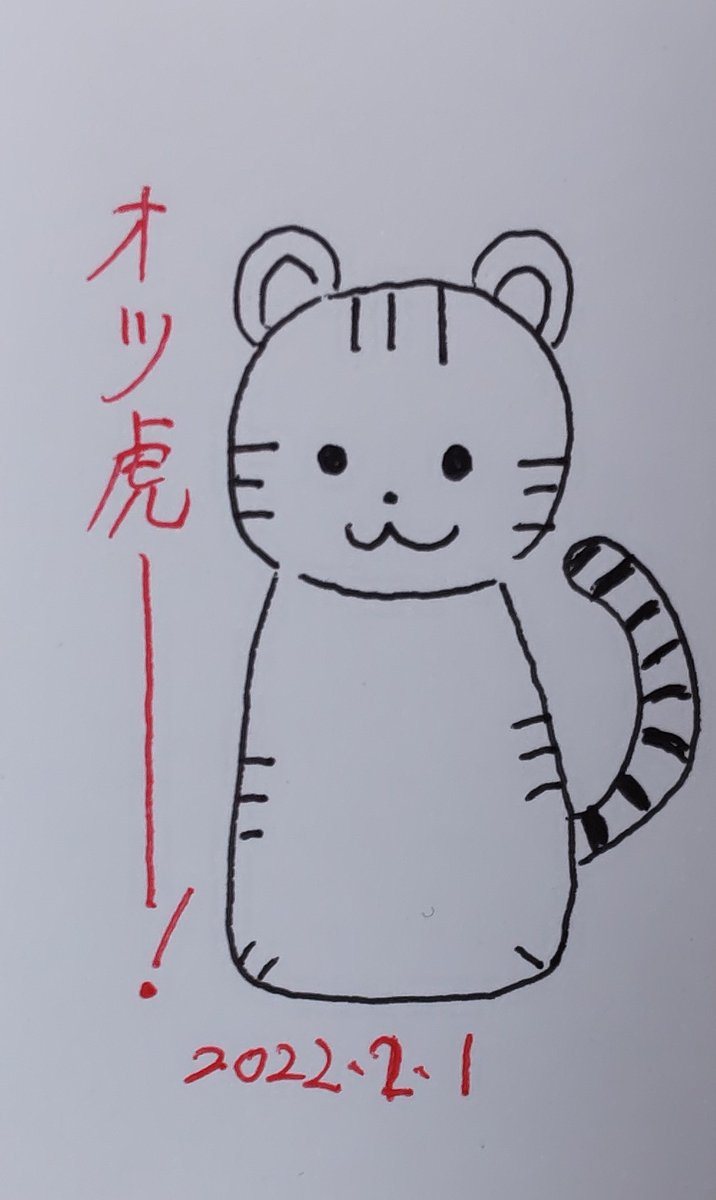 オツ虎ー!
2022.2.1